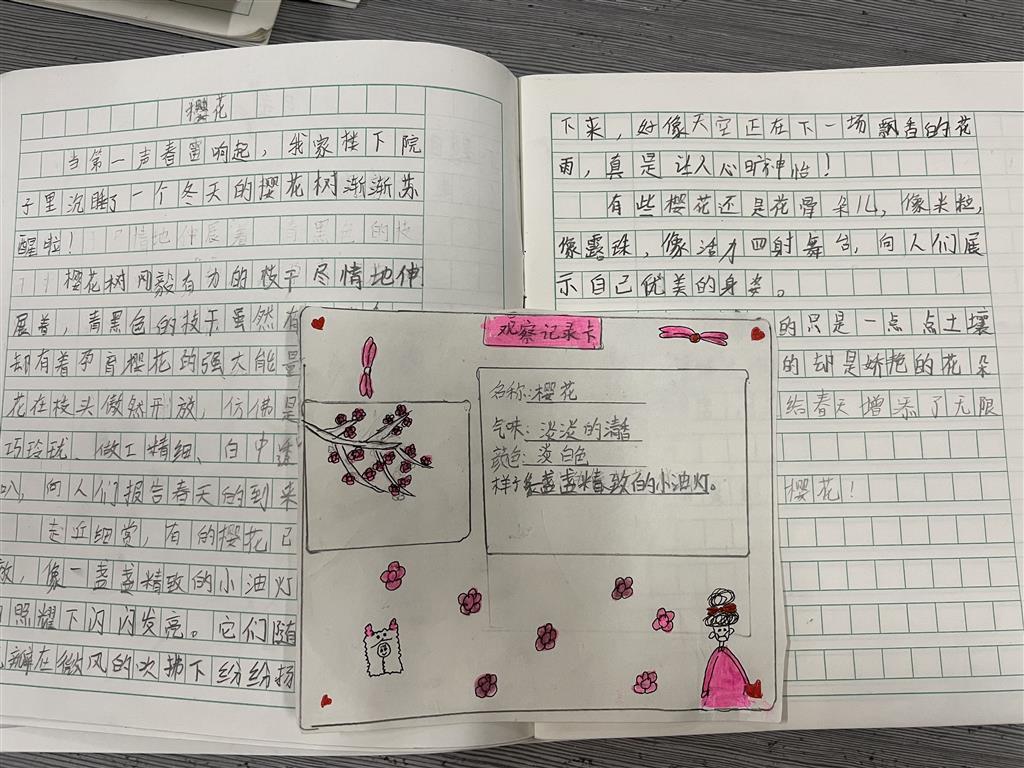 樱花
当第一声春雷响起，我家楼下院
子里沉睡了一个冬天的樱花树渐渐苏
醒啦！
樱花树刚毅有力的枝干尽情地伸
展着，青黑色的枝干虽然有
却有着孕育樱花的强大能量
花在枝头傲然开放，仿佛是
巧玲珑、做工精细、白中透
叭，向人们报告春天的到来
走近细赏，有的樱花已
放，像一盏盏精致的小油灯
照耀下闪闪发亮。它们随
在微风的吹拂下纷纷扬
下来，好像天空正在下一场飘香的花
雨，真是让人心旷神怡！
有些樱花还是花骨朵儿，像米粒，
像露珠，像活力四射舞台，向人们展
示自己优美的身姿。
的只是一点点土壤
的却是娇艳的花朵
给春天增添了无限
樱花！
观察记录卡
名称：樱花
气味：淡淡的清香
颜色：淡白色
样子：盏盏精致的小油灯。